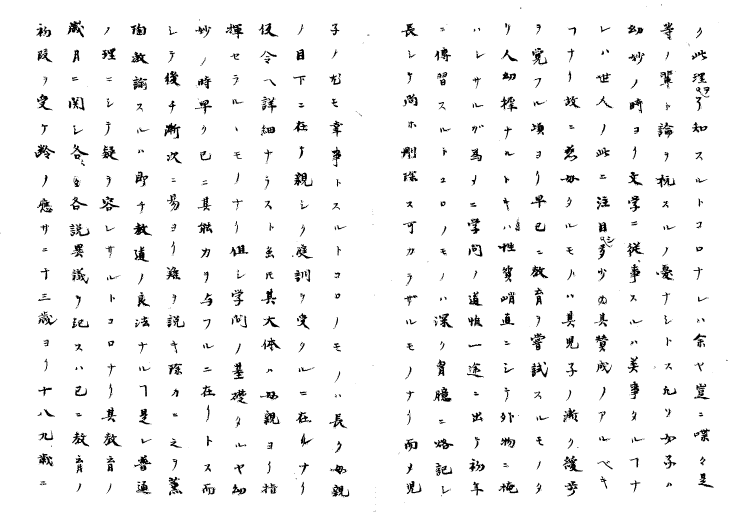 ク此理ヲ了知スルトコロナレハ余ヤ豈ニ喋々是
等ノ輩ト論ヲ抗スルノ憂ナシトス凡ソ女子ハ
幼妙ノ時ヨリ文学ニ従事スルハ美事タルフナ
レハ世人ノ此ニ注目シ多少ノ其賛成ノアルヘキ
フナリ故ニ慈母タルモノハ其児子ノ漸ク後歩
ヲ覚フル頃ヨリ早已ニ教育ヲ嘗試スルモノタ
リ人幼稚ナルトキハ性質峭直ニシテ外物ニ掩
ハレサルガ為メニ学問ノ道恢一途ニ出ケ初年
ニ傳習スルトコロノモノハ深ク胷臆ニ烙記シ
長シケ尚ホ剛除ス可カラザルモノナリ而メ児
子ノ尤モ章事トスルトコロノモノハ長ク母親
ノ目下ニ在ケ親シク庭訓ヲ受クルニ在ルナリ
伎令ヘ詳細ナラスト虽トモ其大体ハ母親ヨリ指
揮セラルヽモノナリ但シ学問ノ基礎タルヤ幼
妙ノ時早ク已ニ其能力ヲ与フルニ在リトス而
シテ後チ漸次ニ易ヨリ難ヲ説キ除カニ之ヲ薫
陶教諭スルハ即チ教道ノ良法ナルフ是レ普通
ノ理ニシテ疑ヲ容レサルトコロナリ其教育ノ
歳月ニ関シ各亙各説異議ヲ記スハ已ニ教育ノ
初段ヲ受ケ齢ノ應サニ十三歳ヨリ十八九歳ニ